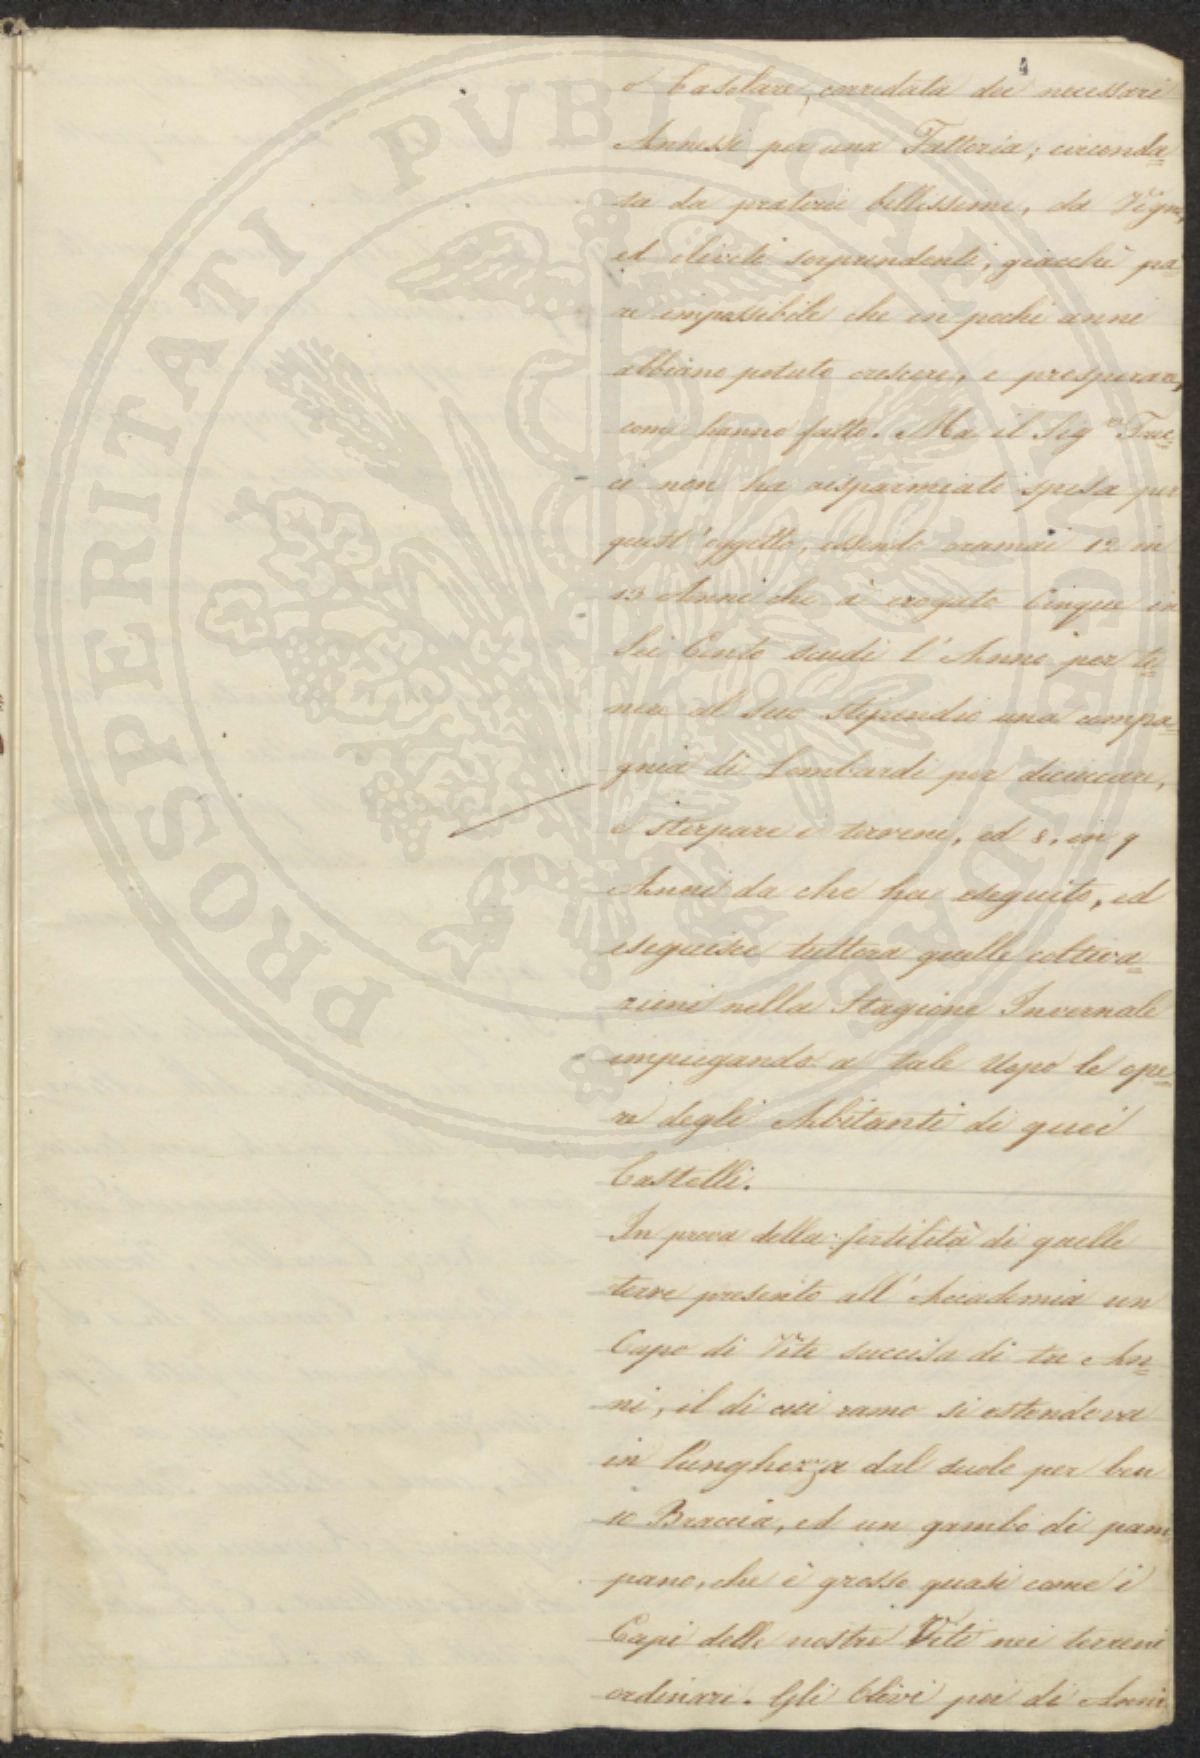 4
o Casolare, corredata dei necessari
Annessi per una Fattoria; circonda=
ta da praterie bellissime, da Vigne,
ed oliveti sorprendenti, giacchè pa
re impossibile che in pochi anni
abbiano potuto crescere, e prosperare,
come hanno fatto. Ma il Sig.re Tuc=
ci non ha risparmiato spesa per
quest'oggetto, essendo oramai 12 in
13 Anni che à erogato Cinque in
Sei Cento scudi l'Anno per te=
nere al suo stipendio una compa=
gnia di Lombardi per dicioccare,
e sterpare i terreni, ed 8, in 9
Anni da che ha eseguito, ed
eseguisce tuttora quelle coltiva=
zioni nella Stagione Invernale
impiegando a tale Uopo le ope=
re degli Abitanti di quei
Castelli.
In prova della fertilità di quelle
terre presento all'Accademia un
Capo di Vite succisa di tre An=
ni, il di cui ramo si estendeva
in lunghezza dal suolo per ben
10 Braccia, ed un gambo di pam
pano, che è grosso quasi come i
Capi delle nostre Viti nei terreni
ordinari. Gli Olivi poi di Anni
PROSPERITATI PUBLICAE AUGENDAE